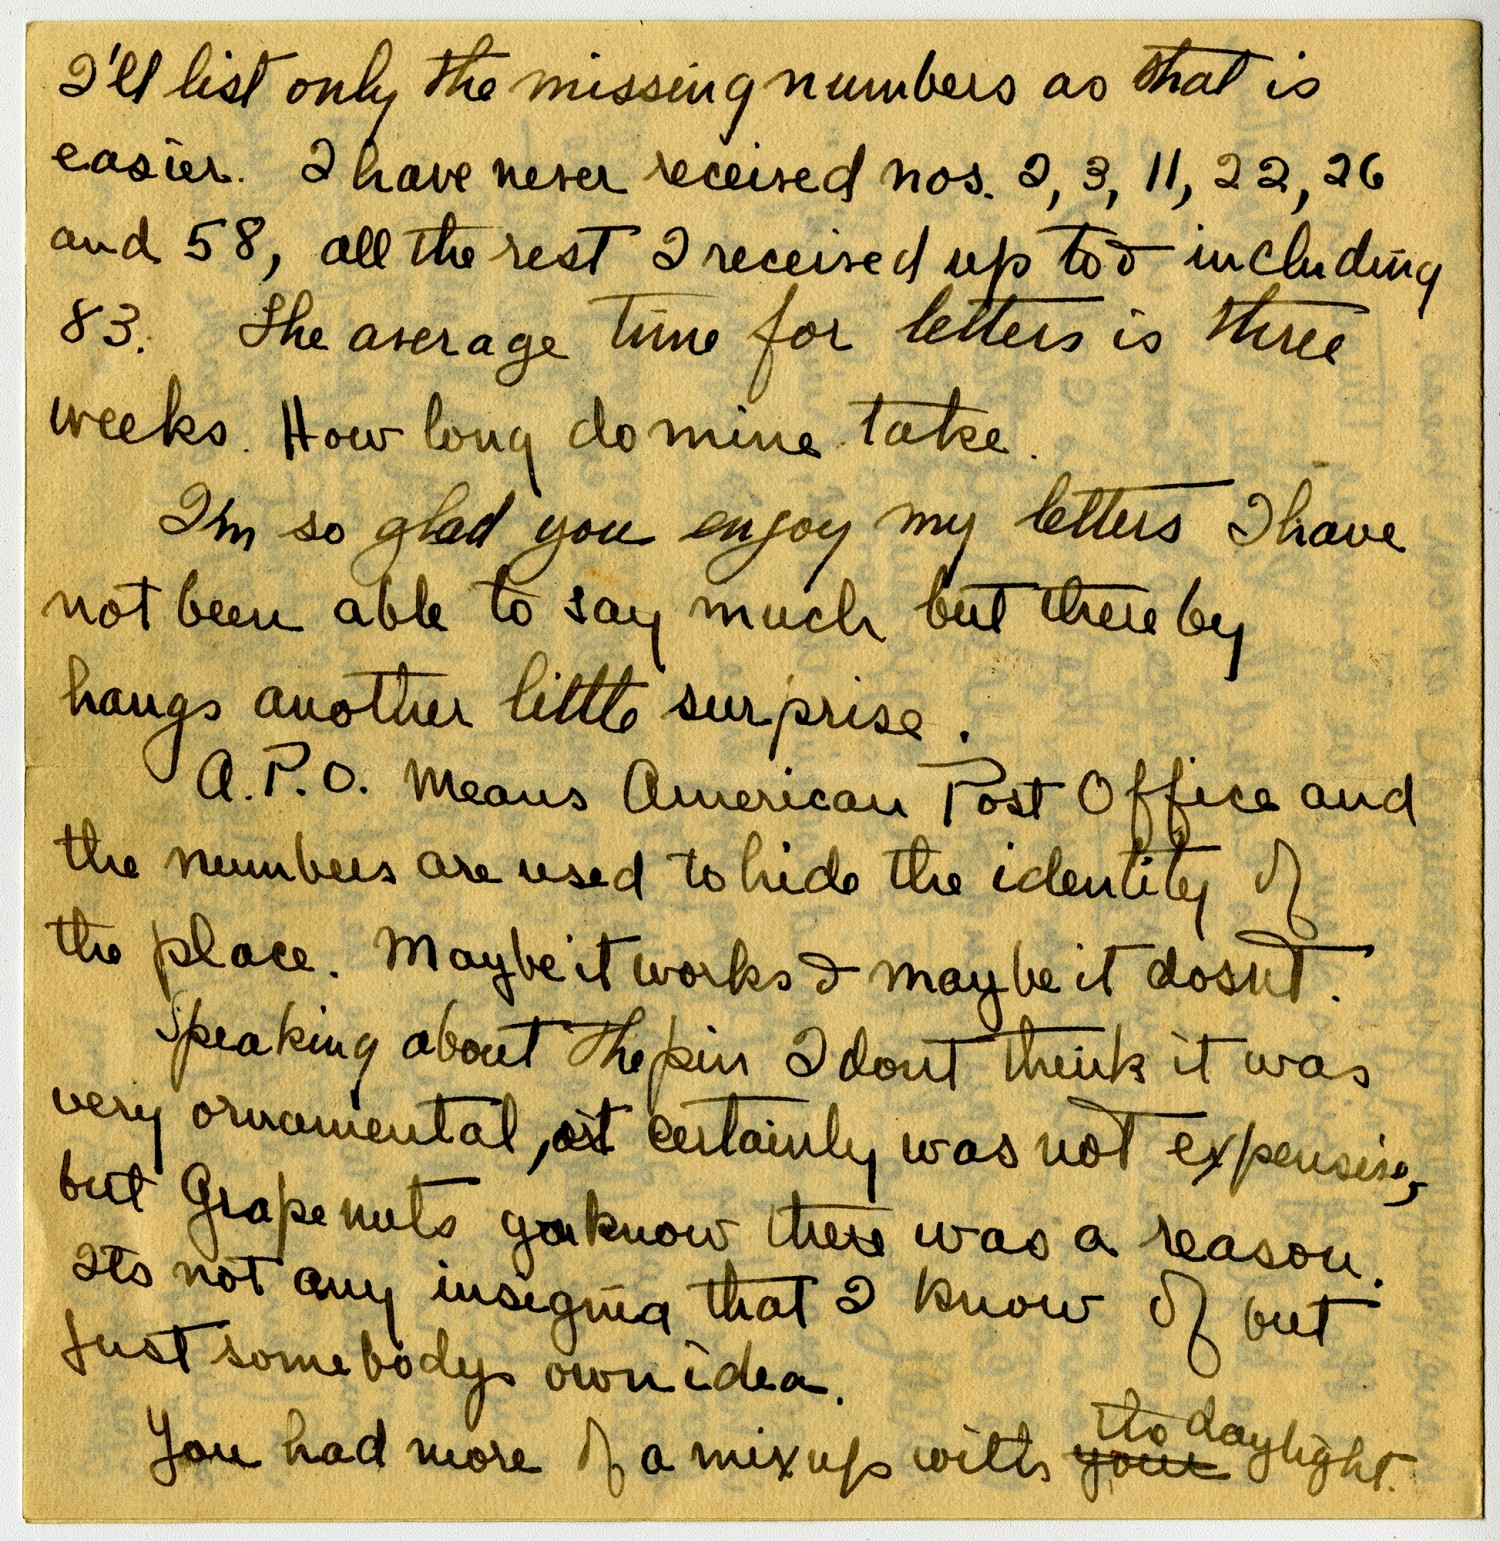 I'll list only the missing numbers as that is
easier. I have never received nos. 2, 3, 11, 22, 26
and 58, all the rest I received up to & including
83. The average time for letters is three
weeks. How long do mine take.
I'm so glad you enjoy my letters I have
not been able to say much but thereby
hangs another little surprise.
A.P.O. Means American Post Office and
the numbers are used to hide the identity of
the place. Maybe it works & maybe it dosnt.
Speaking about the pin I dont think it was
very ornamental, it certainly was not expensive,
but Grape nuts you know there was a reason.
Its not any insignia that I know of but
just somebodys own idea.
You had more of a mixup with your the daylight.